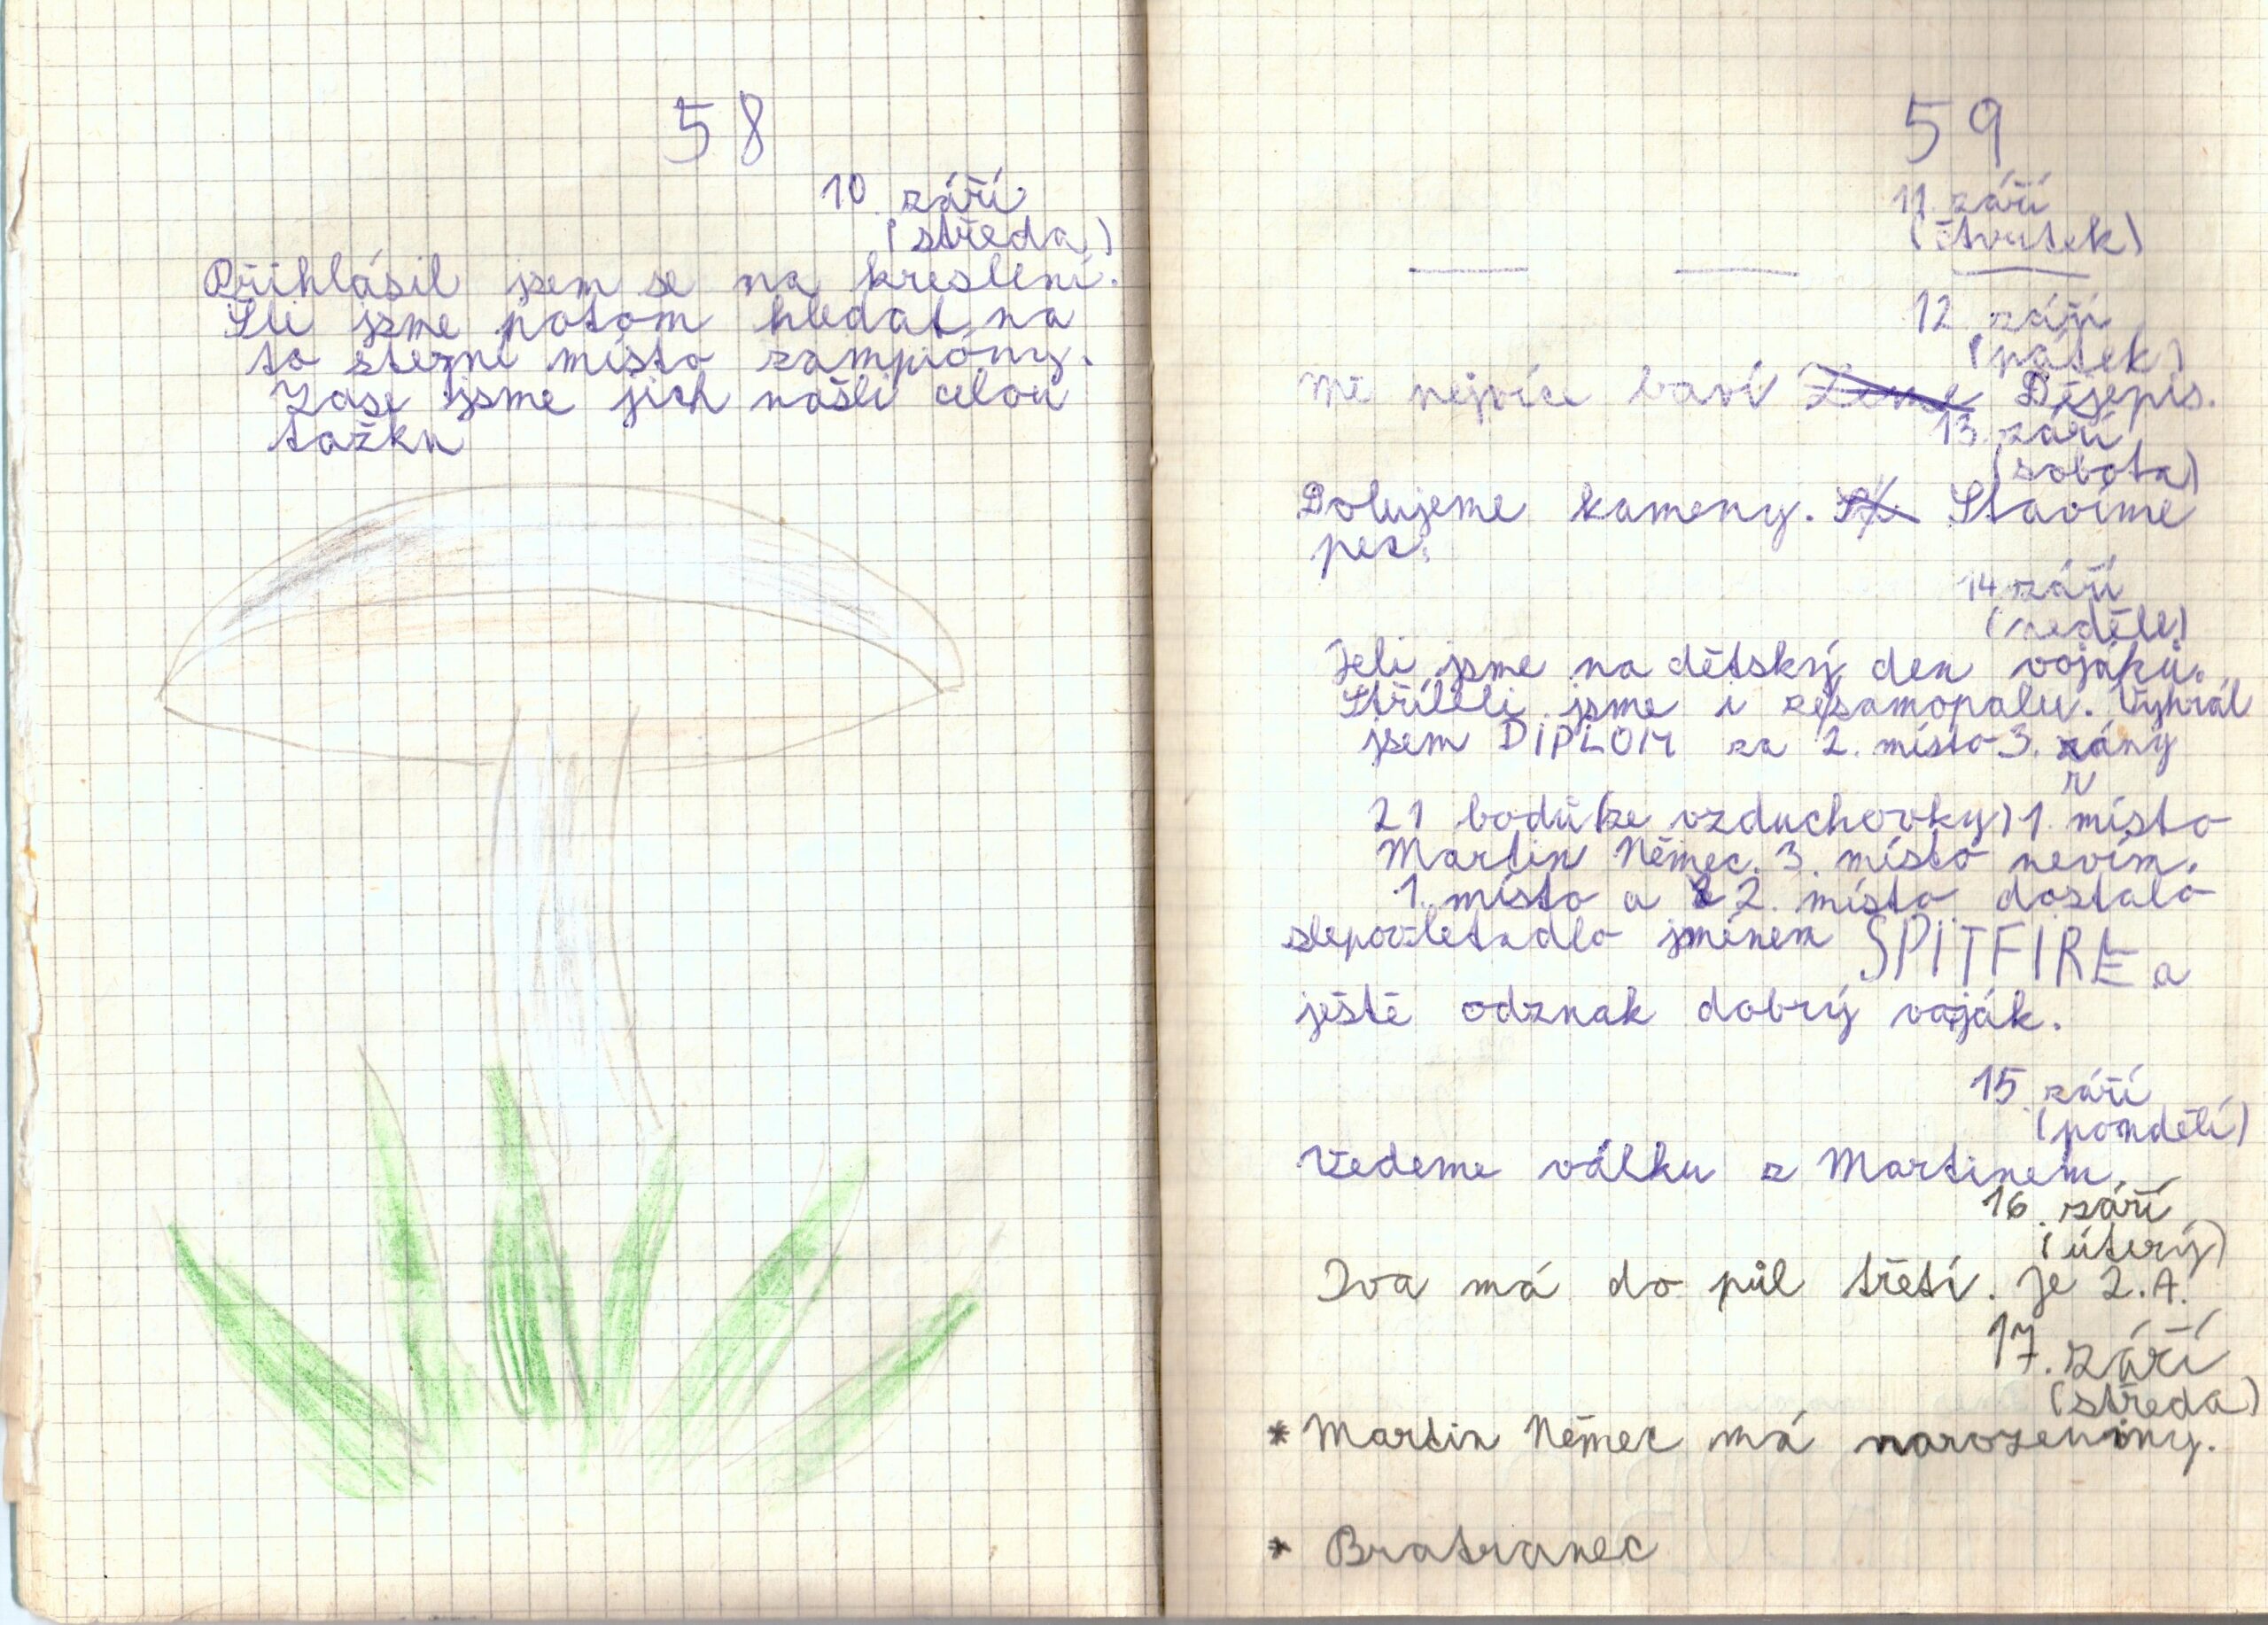 58
10. září
(středa)
Přihlásil jsem se na kreslení.
Šli jsme potom hledat na
to stejné místo žampióny.
Zase jsme jich našli celou
tažku
59
11. září
(čtvrtek)
12. září
(pátek)
Mě nejvíce baví Děsepis.
13. září
(sobota)
Dolujeme kameny. Stavíme
pec.
14. září
(neděle)
Jeli jsme na dětský den vojáků.
Stříleli jsme i ze samopalu. Vyhrál
jsem DIPLOM za 2. místo 3. rány
r
21 bodů (ze vzduchovky) 1. místo
Martin Němec. 3. místo nevím.
1. místo a 2. místo dostalo
letadlo jménem SPITFIRE a
ještě odznak dobrý voják.
15. září
(pondělí)
Vedeme válku z Martinem.
16. září
(úterý)
Iva má do půl třetí. Je 2.A.
17. září
(středa)
* Martin Němec má narozeniny.
* Bratranec